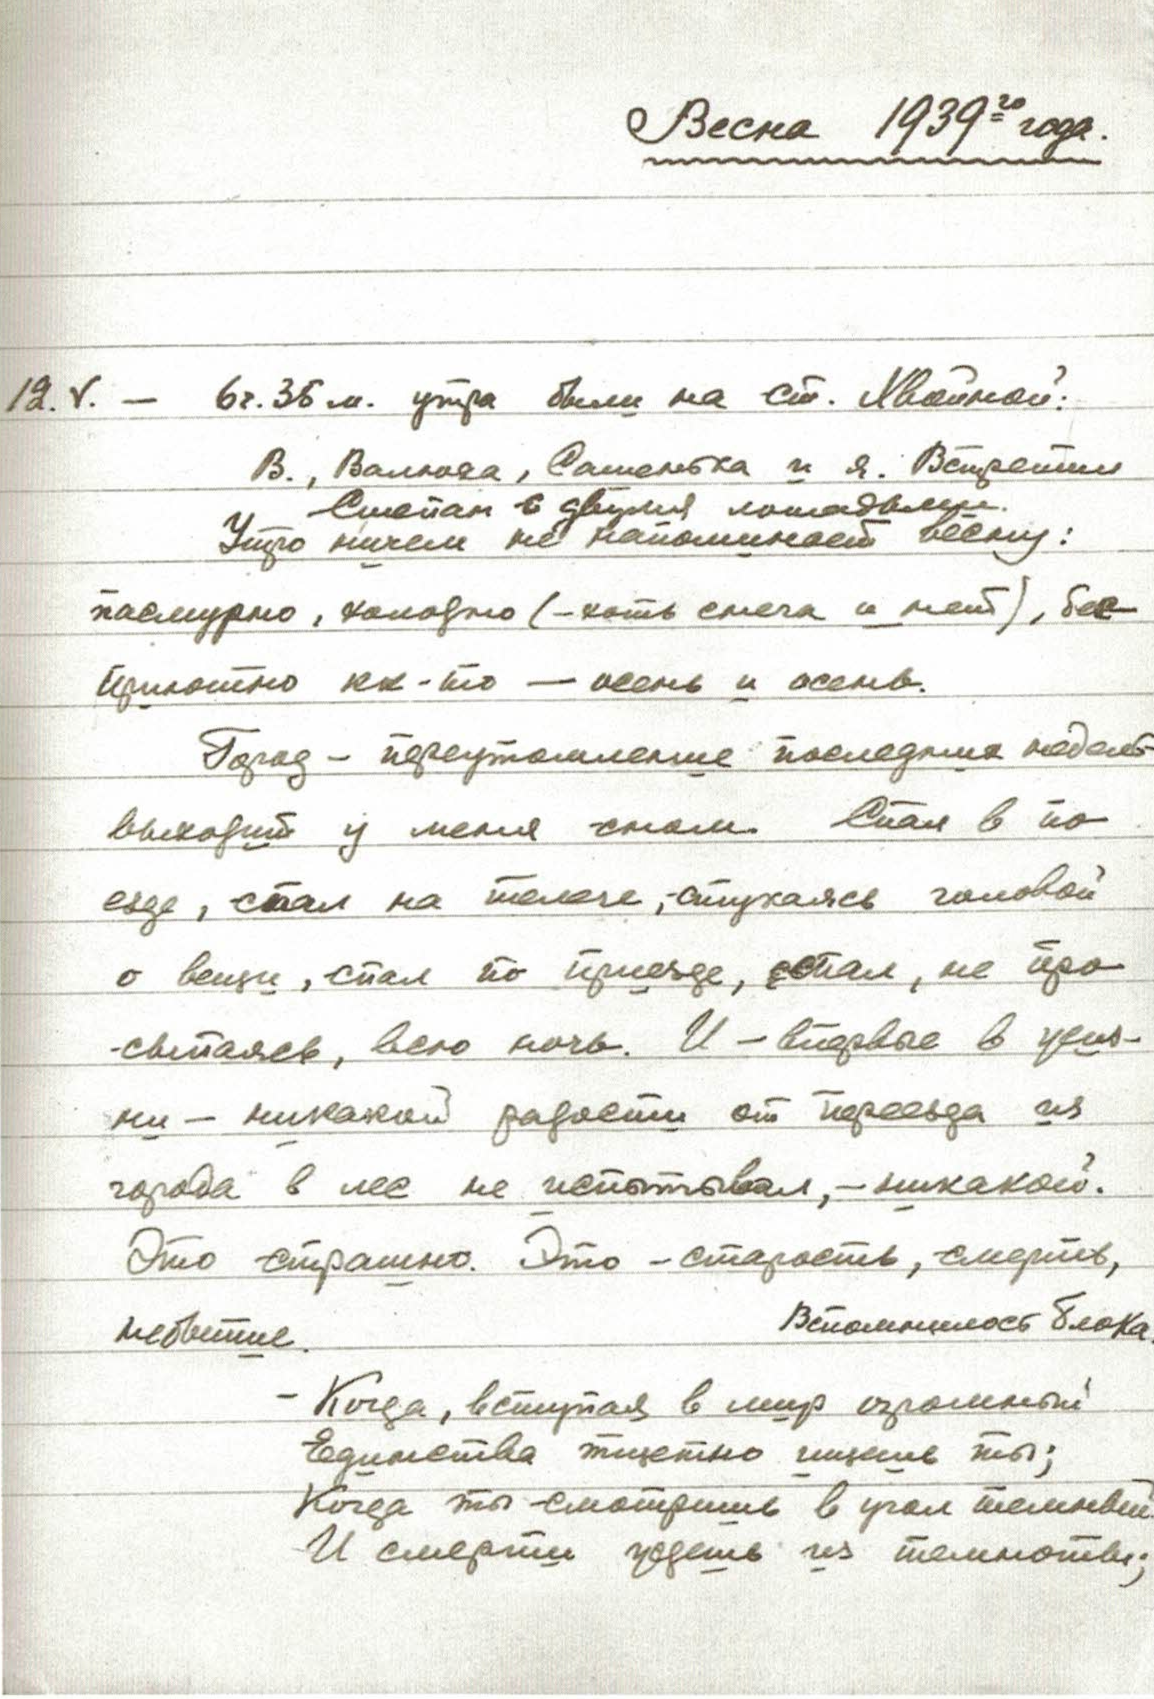 Весна 1939го года.
12.V. — 6ч.35м. утра были на ст. Хвойной:
В., Валюха, Сашенька и я. Встретил
Степан с двумя лошадьми.
Утро ничем не напоминает весну:
пасмурно, холодно (-хоть снега и нет), бес-
приютно кк-то — осень и осень.
Город — переутомление последних недель
выходит у меня сном. Спал в по-
езде, спал на телеге, стукаясь головой
о вещи, спал по приезде, спал, не про-
сыпаясь, всю ночь. И — впервые в жиз-
ни — никакой радости от переезда из
города в лес не испытывал, — никакой.
Это страшно. Это — старость, смерть,
небытие. Вспомнилось Блока.
— Когда, вступая в мир огромный
Единства тщетно ищешь ты;
Когда ты смотришь в угол темный
И смерти ждешь из темноты;